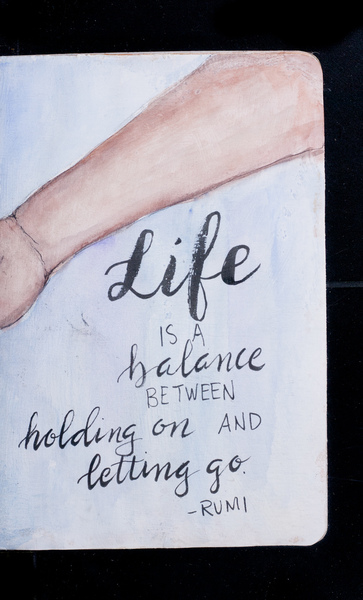 Life
IS A
balance
BETWEEN
holding on AND
letting go.
-RUMI